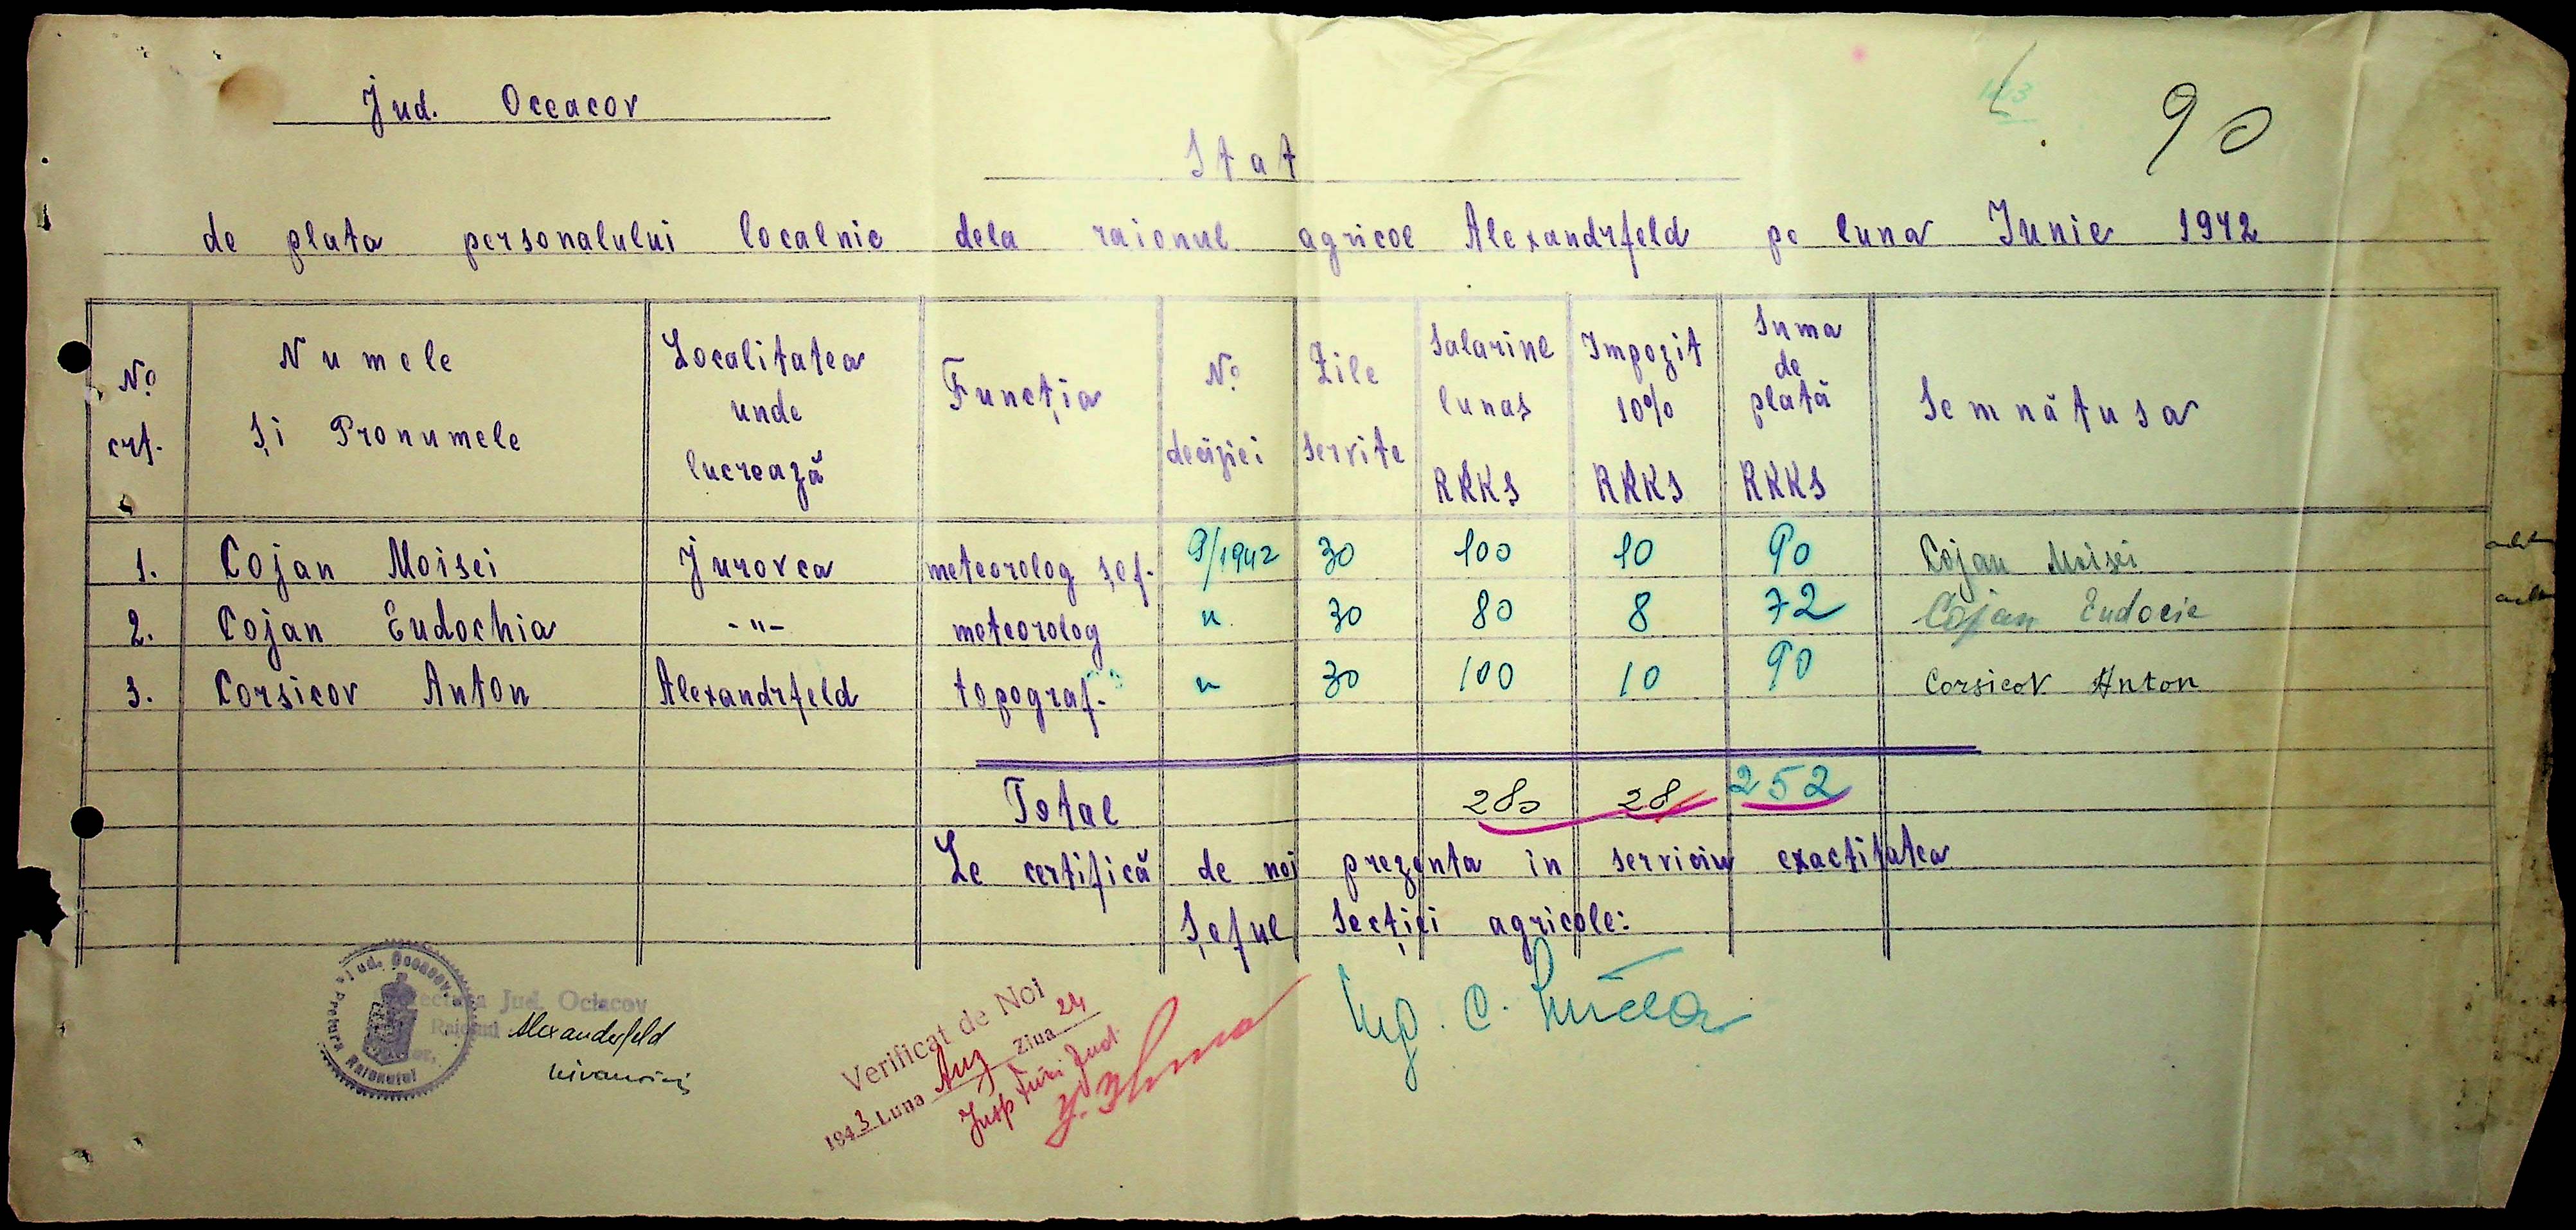 Jud. Oceacov
90
Stat
de plata personalului localnic dela raionul agricol Alexandrfeld pe luna Iunie 1942
No crt. | Numele și Pronumele | Localitatea unde lucrează | Funcția | No deciziei | Zile servite | Salariul lunar RKKS | Impozit 10% RKKS | Suma de plată RKKS | Semnătura
1. Cojan Moisei Jurovca meteorolog șef. 9/1942 30 100 10 90 Cojan Moisei
2. Cojan Eudochia -"- meteorolog " 30 80 8 72 Cojan Eudocie
3. Corsicov Anton Alexandrfeld topograf. " 30 100 10 90 Corsicov Anton
Total 280 28 252
Se certifică de noi prezenta in serviciu exactitatea
Șeful Secției agricole:
Ing. C.
Jud. Oceacov
Pretura Raionului
Jud. Ociacov
Raionul Alexanderfeld
Verificat de Noi
1943 Luna Aug Ziua 24